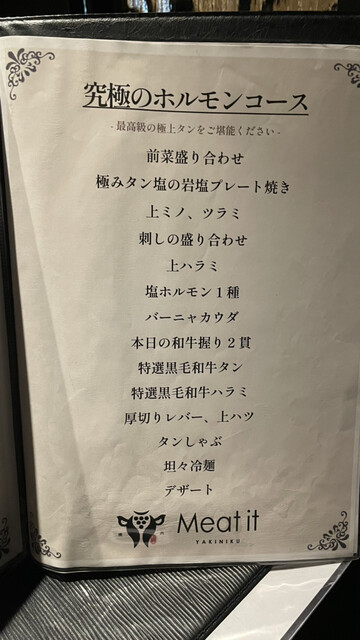 究極のホルモンコース
- 最高級の極上タンをご堪能ください -
前菜盛り合わせ
極みタン塩の岩塩プレート焼き
上ミノ、ツラミ
刺しの盛り合わせ
上ハラミ
塩ホルモン1種
バーニャカウダ
本日の和牛握り2貫
特選黒毛和牛タン
特選黒毛和牛ハラミ
厚切りレバー、上ハツ
タンしゃぶ
坦々冷麺
デザート
Meat it
YAKINIKU